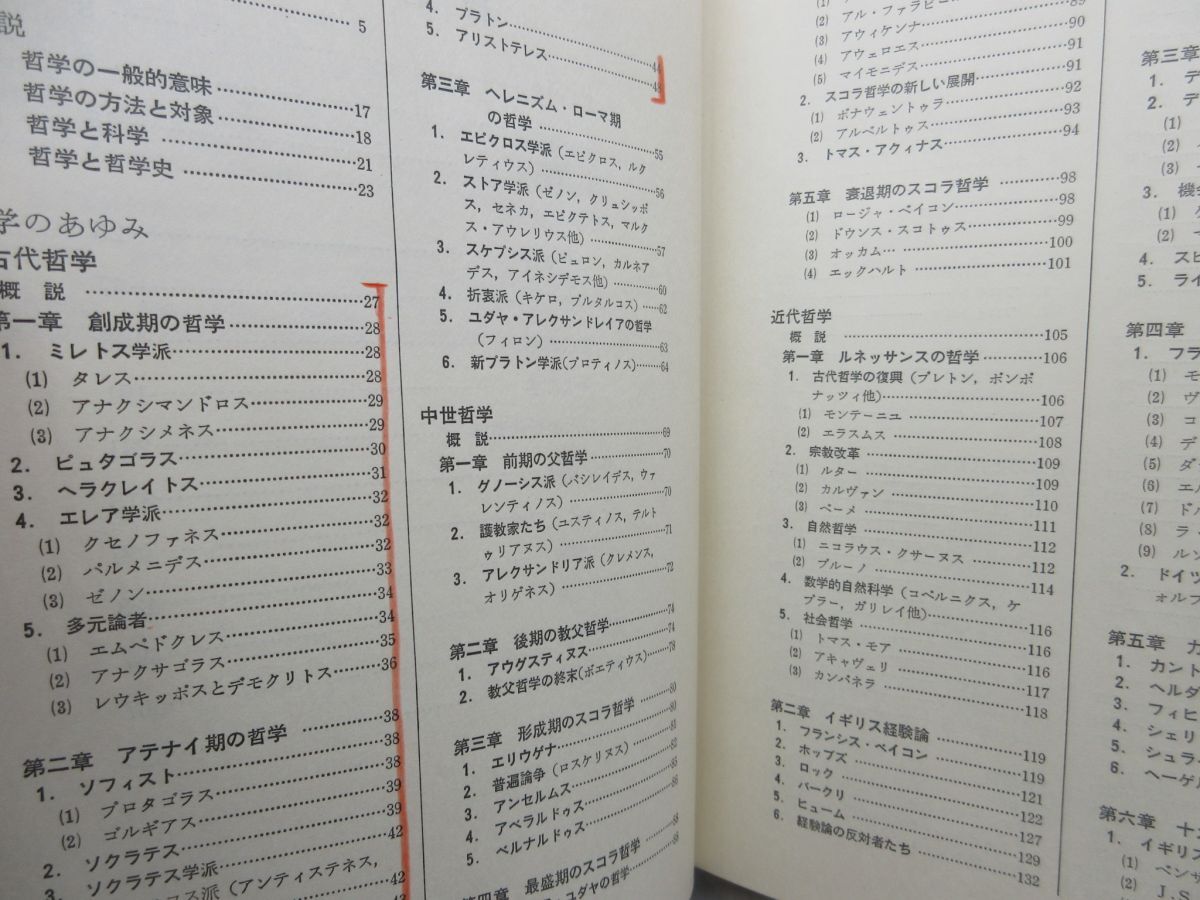 説
……5
哲学の一般的意味……17
哲学の方法と対象……18
哲学と科学……21
哲学と哲学史……23
学のあゆみ
古代哲学
概 説……27
第一章 創成期の哲学……28
1. ミレトス学派……28
(1) タレス……28
(2) アナクシマンドロス……29
(3) アナクシメネス……29
2. ピュタゴラス……30
3. ヘラクレイトス……31
4. エレア学派……32
(1) クセノファネス……32
(2) パルメニデス……32
(3) ゼノン……33
5. 多元論者……34
(1) エムペドクレス……34
(2) アナクサゴラス……35
(3) レウキッポスとデモクリトス……36
第二章 アテナイ期の哲学……38
1. ソフィスト……38
(1) プロタゴラス……38
(2) ゴルギアス……39
2. ソクラテス……39
3. ソクラテス学派……42
ス派(アンティステネス,
……42
4. プラトン……44
5. アリストテレス……48
第三章 ヘレニズム・ローマ期
の哲学……55
1. エピクロス学派(エピクロス, ルク
レティウス)……56
2. ストア学派(ゼノン, クリュシッポ
ス, セネカ, エピクテトス, マルク
ス・アウレリウス他)……57
3. スケプシス派(ピュロン, カルネア
デス, アイネシデモス他)……60
4. 折衷派(キケロ, プルタルコス)……62
5. ユダヤ・アレクサンドレイアの哲学
(フィロン)……63
6. 新プラトン学派(プロティノス)……64
中世哲学
概 説……69
第一章 前期の父哲学……70
1. グノーシス派(バシレイデス, ヴァ
レンティノス)……70
2. 護教家たち(ユスティノス, テルト
ゥリアヌス)……71
3. アレクサンドリア派(クレメンス,
オリゲネス)……72
第二章 後期の教父哲学……74
1. アウグスティヌス……74
2. 教父哲学の終末(ボエティウス)……78
第三章 形成期のスコラ哲学……80
1. エリウゲナ……80
2. 普遍論争(ロスケリヌス)……81
3. アンセルムス……82
4. アベラルドゥス……85
5. ベルナルドゥス……86
第四章 最盛期のスコラ哲学……88
・ユダヤの哲学……88
(2) アル・ファラビー……89
(3) アウィケンナ……90
(4) アウェロエス……91
(5) マイモニデス……91
2. スコラ哲学の新しい展開……91
(1) ボナウェントゥラ……92
(2) アルベルトゥス……93
3. トマス・アクィナス……94
第五章 衰退期のスコラ哲学……98
(1) ロージャ・ベイコン……98
(2) ドウンス・スコトゥス……99
(3) オッカム……100
(4) エックハルト……101
近代哲学
概 説……105
第一章 ルネッサンスの哲学……106
1. 古代哲学の復興(プレトン, ポンポ
ナッツィ他)……106
(1) モンテーニュ……107
(2) エラスムス……108
2. 宗教改革……109
(1) ルター……109
(2) カルヴァン……110
(3) ベーメ……111
3. 自然哲学……112
(1) ニコラウス・クサーヌス……112
(2) ブルーノ……114
4. 数学的自然科学(コペルニクス, ケ
プラー, ガリレイ他)……116
5. 社会哲学……116
(1) トマス・モア……116
(2) アキャヴェリ……117
(3) カンパネラ……118
第二章 イギリス経験論……119
1. フランシス・ベイコン……119
2. ホッブズ……121
3. ロック……122
4. バークリ……127
5. ヒューム……129
6. 経験論の反対者たち……132
第三章
1. デ
2. デ
(1)
(2)
(3)
3. 機会
(1)
(2)
4. スピ
5. ライ
第四章
1. フラ
(1) モ
(2) ヴ
(3) コ
(4) デ
(5) ダ
(6) エル
(7) ドル
(8) ラ・
(9) ルソ
2. ドイツ
ォルフ
第五章 カ
1. カント
2. ヘルダ
3. フィヒ
4. シェリ
5. シュラ
6. ヘーゲ
第六章 十
1. イギリス
(1) ベンサ
(2) J.S.